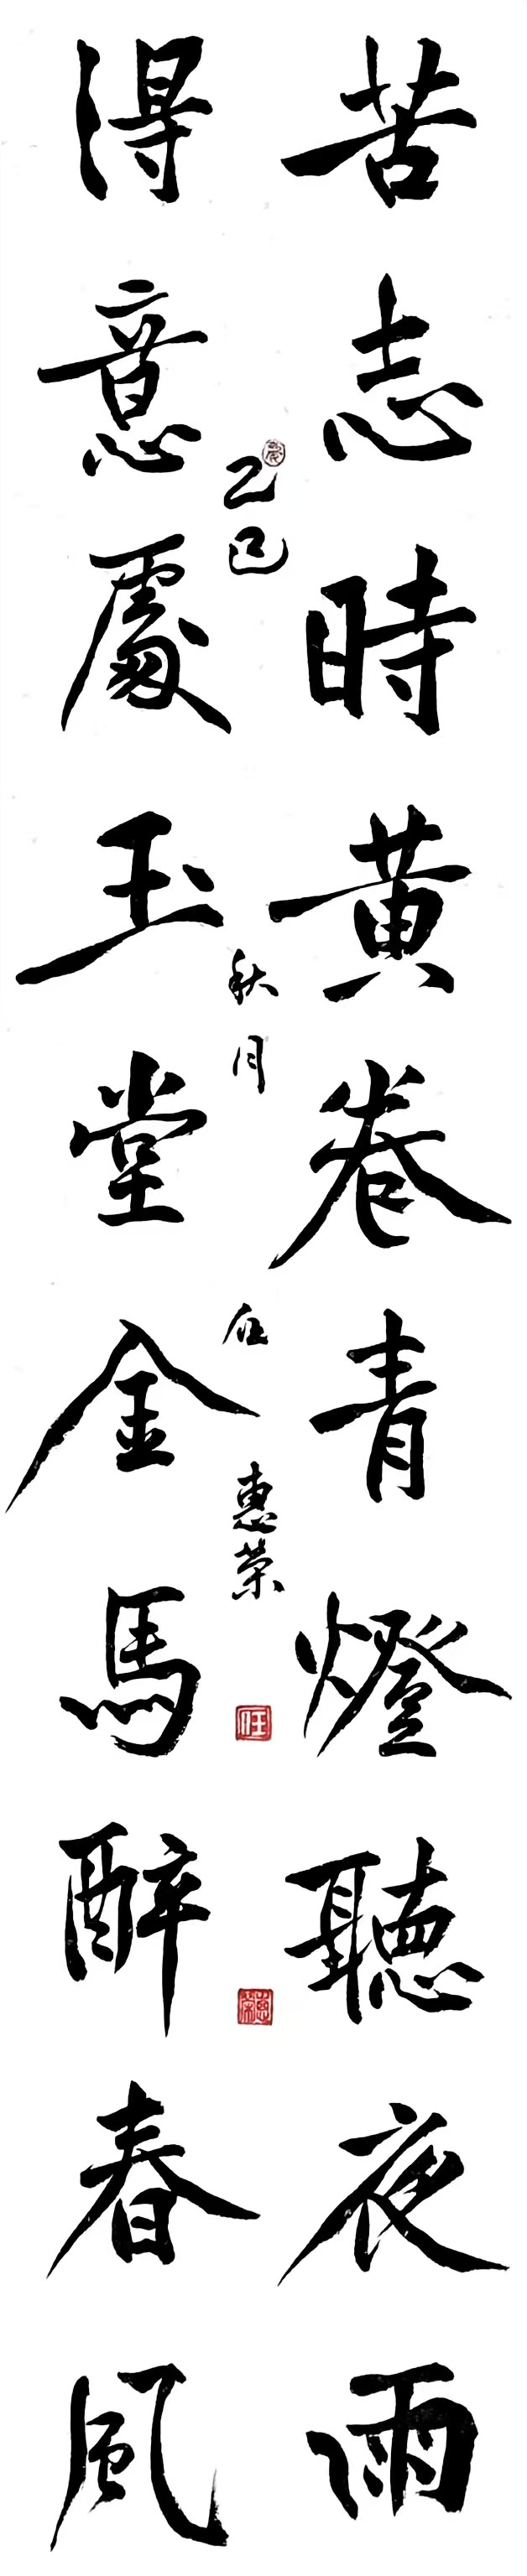 苦志時黄卷青燈聽夜雨
得意處玉堂金馬醉春風
乙巳秋月任惠荣